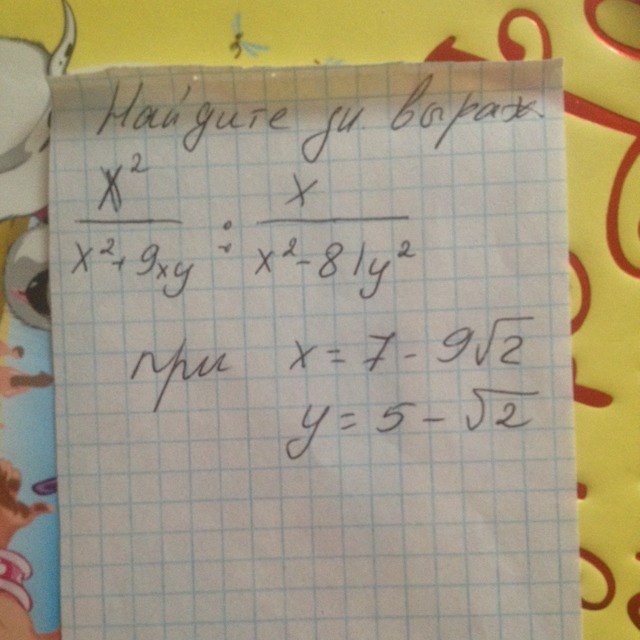 Найдите зн выраж
x² / x²+9xy : x / x²-81y²
при x = 7 - 9√2
y = 5 - √2